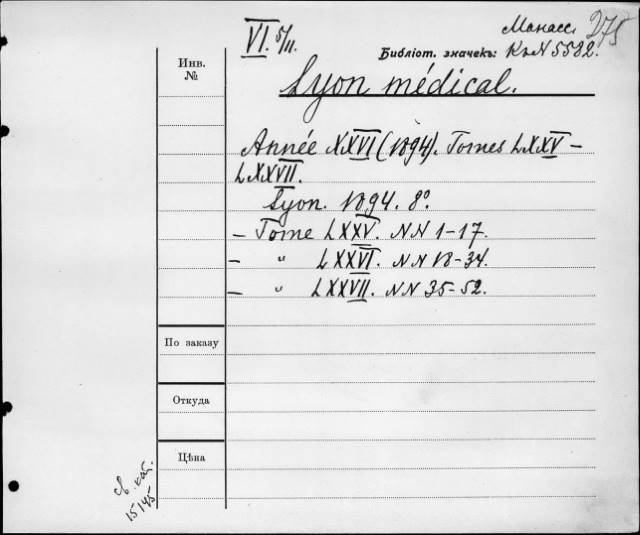 VI. 5/11.
Манасс. 275
Инв. №
Библіот. значекъ: К. N 5582.
Lyon médical.
Année XXVI (1894). Tomes LXXV –
LXXVII.
Lyon. 1894. 8º.
– Tome LXXV. NN 1-17.
– " LXXVI. NN 18-34.
– " LXXVII. NN 35-52.
По заказу
Откуда
Цѣна
св. кат.
15145